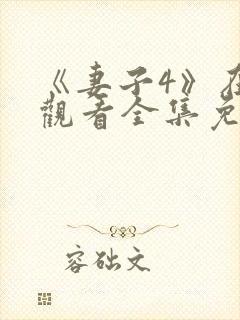 《妻子4》在
觀看全集免
容础文